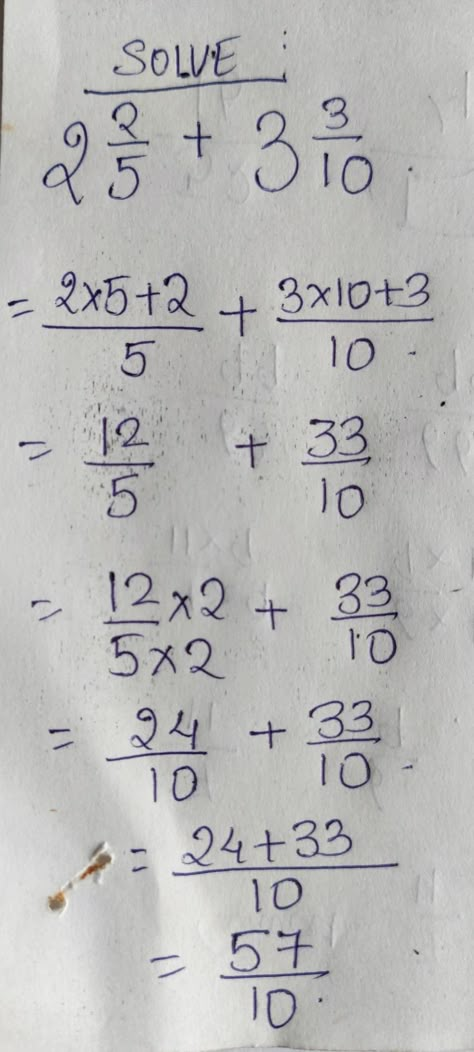 SOLVE :
2 2/5 + 3 3/10 .
= 2×5+2/5 + 3×10+3/10 .
= 12/5 + 33/10
= 12×2/5×2 + 33/10
= 24/10 + 33/10 .
= 24+33/10
= 57/10 .